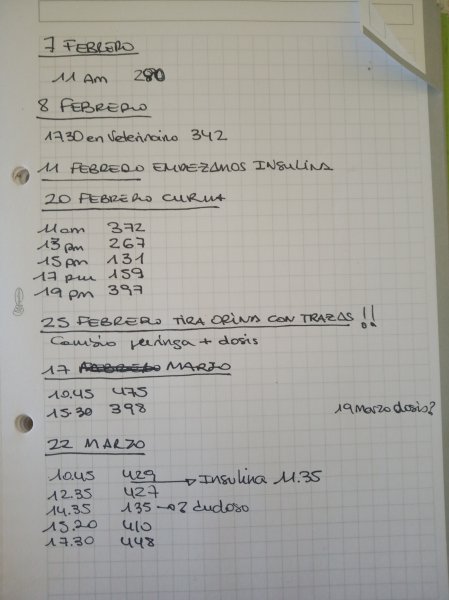 7 FEBRERO
11 Am 280
8 FEBRERO
1730 en Veterinario 342
11 FEBRERO EMPEZAMOS INSULINA
20 FEBRERO CURVA
11 am 372
13 pm 267
15 pm 131
17 pm 159
19 pm 397
25 FEBRERO TIRA ORINA CON TRAZAS !!
Cambio jeringa + dosis
17 FEBRERO MARZO
10.45 475
15.30 398
19 Marzo dosis?
22 MARZO
10.45 429 → Insulina 11.35
12.35 427
14.35 135 → ? dudoso
15.20 410
17.30 448